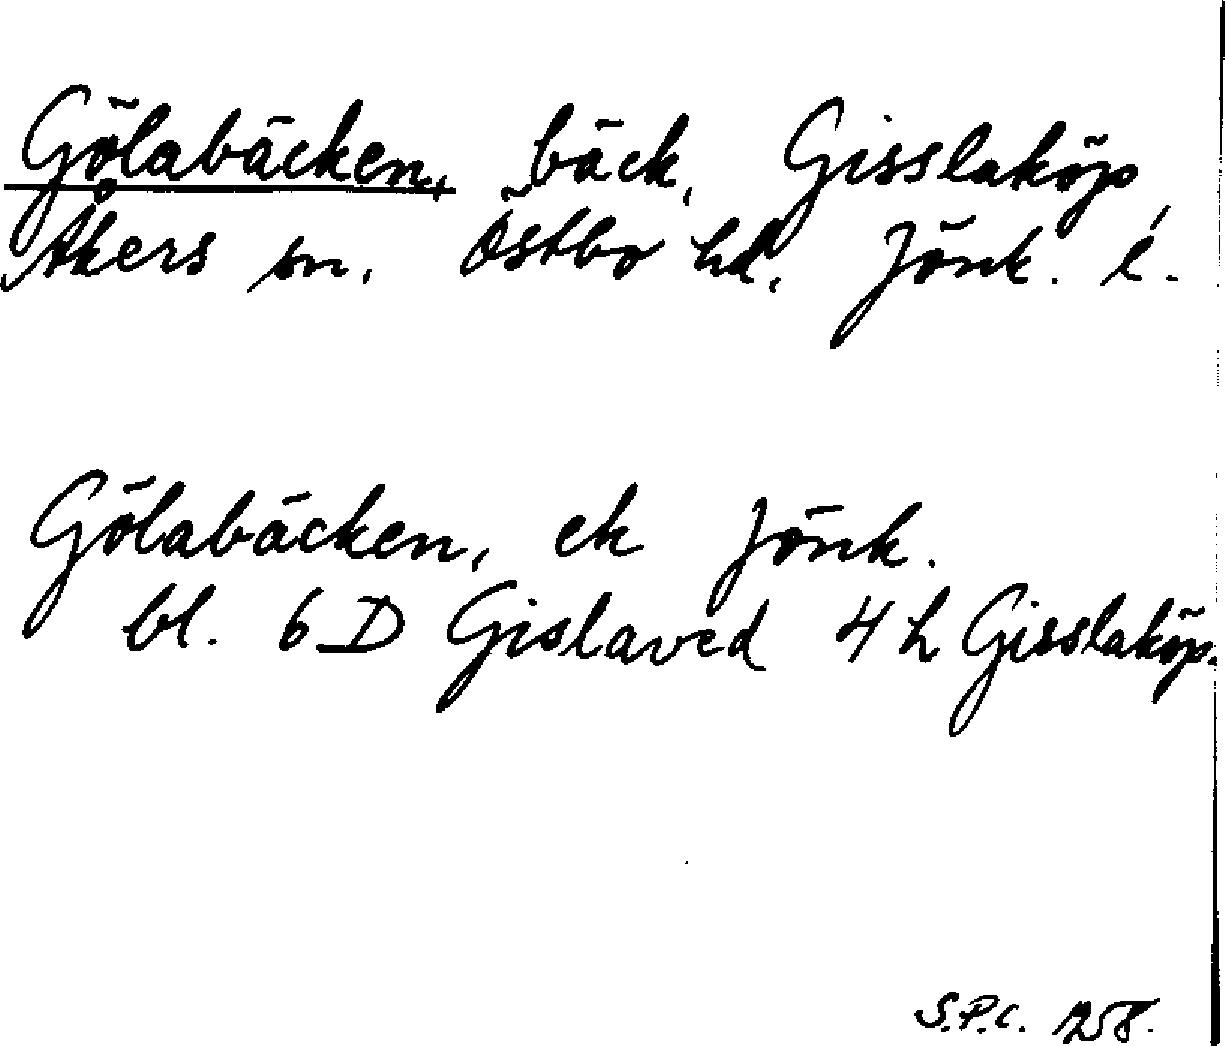 Gölabäcken, bäck, Gisslaköp,
Åkers sn. Östbo hd. Jönk. l.
Gölabäcken, ek Jönk.
bl. 6 D Gislaved 4 h Gisslaköp.
S.P.C. 258.